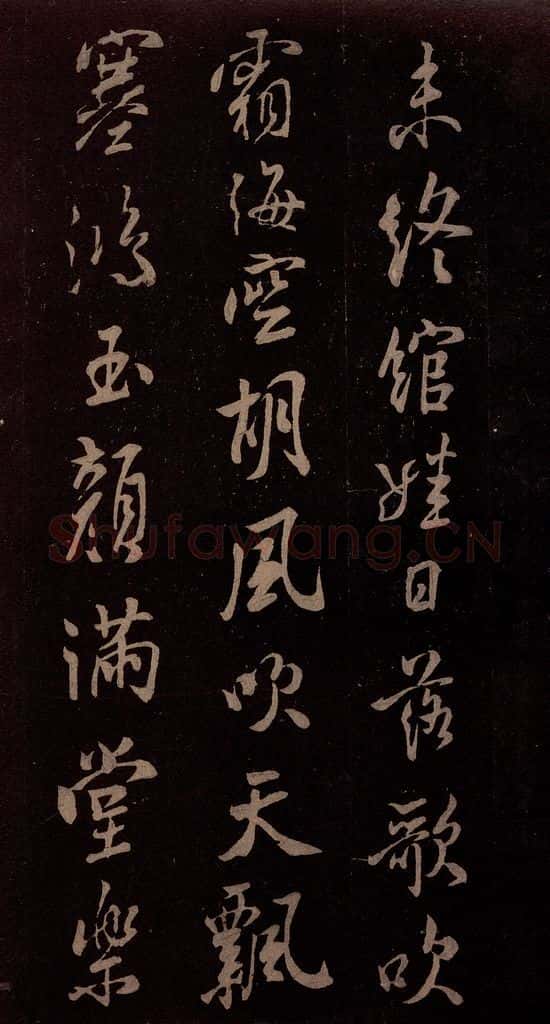 未終館娃日落歌吹
霜海空胡風吹天飄
塞鴻玉顏滿堂樂
Shufawang.CN